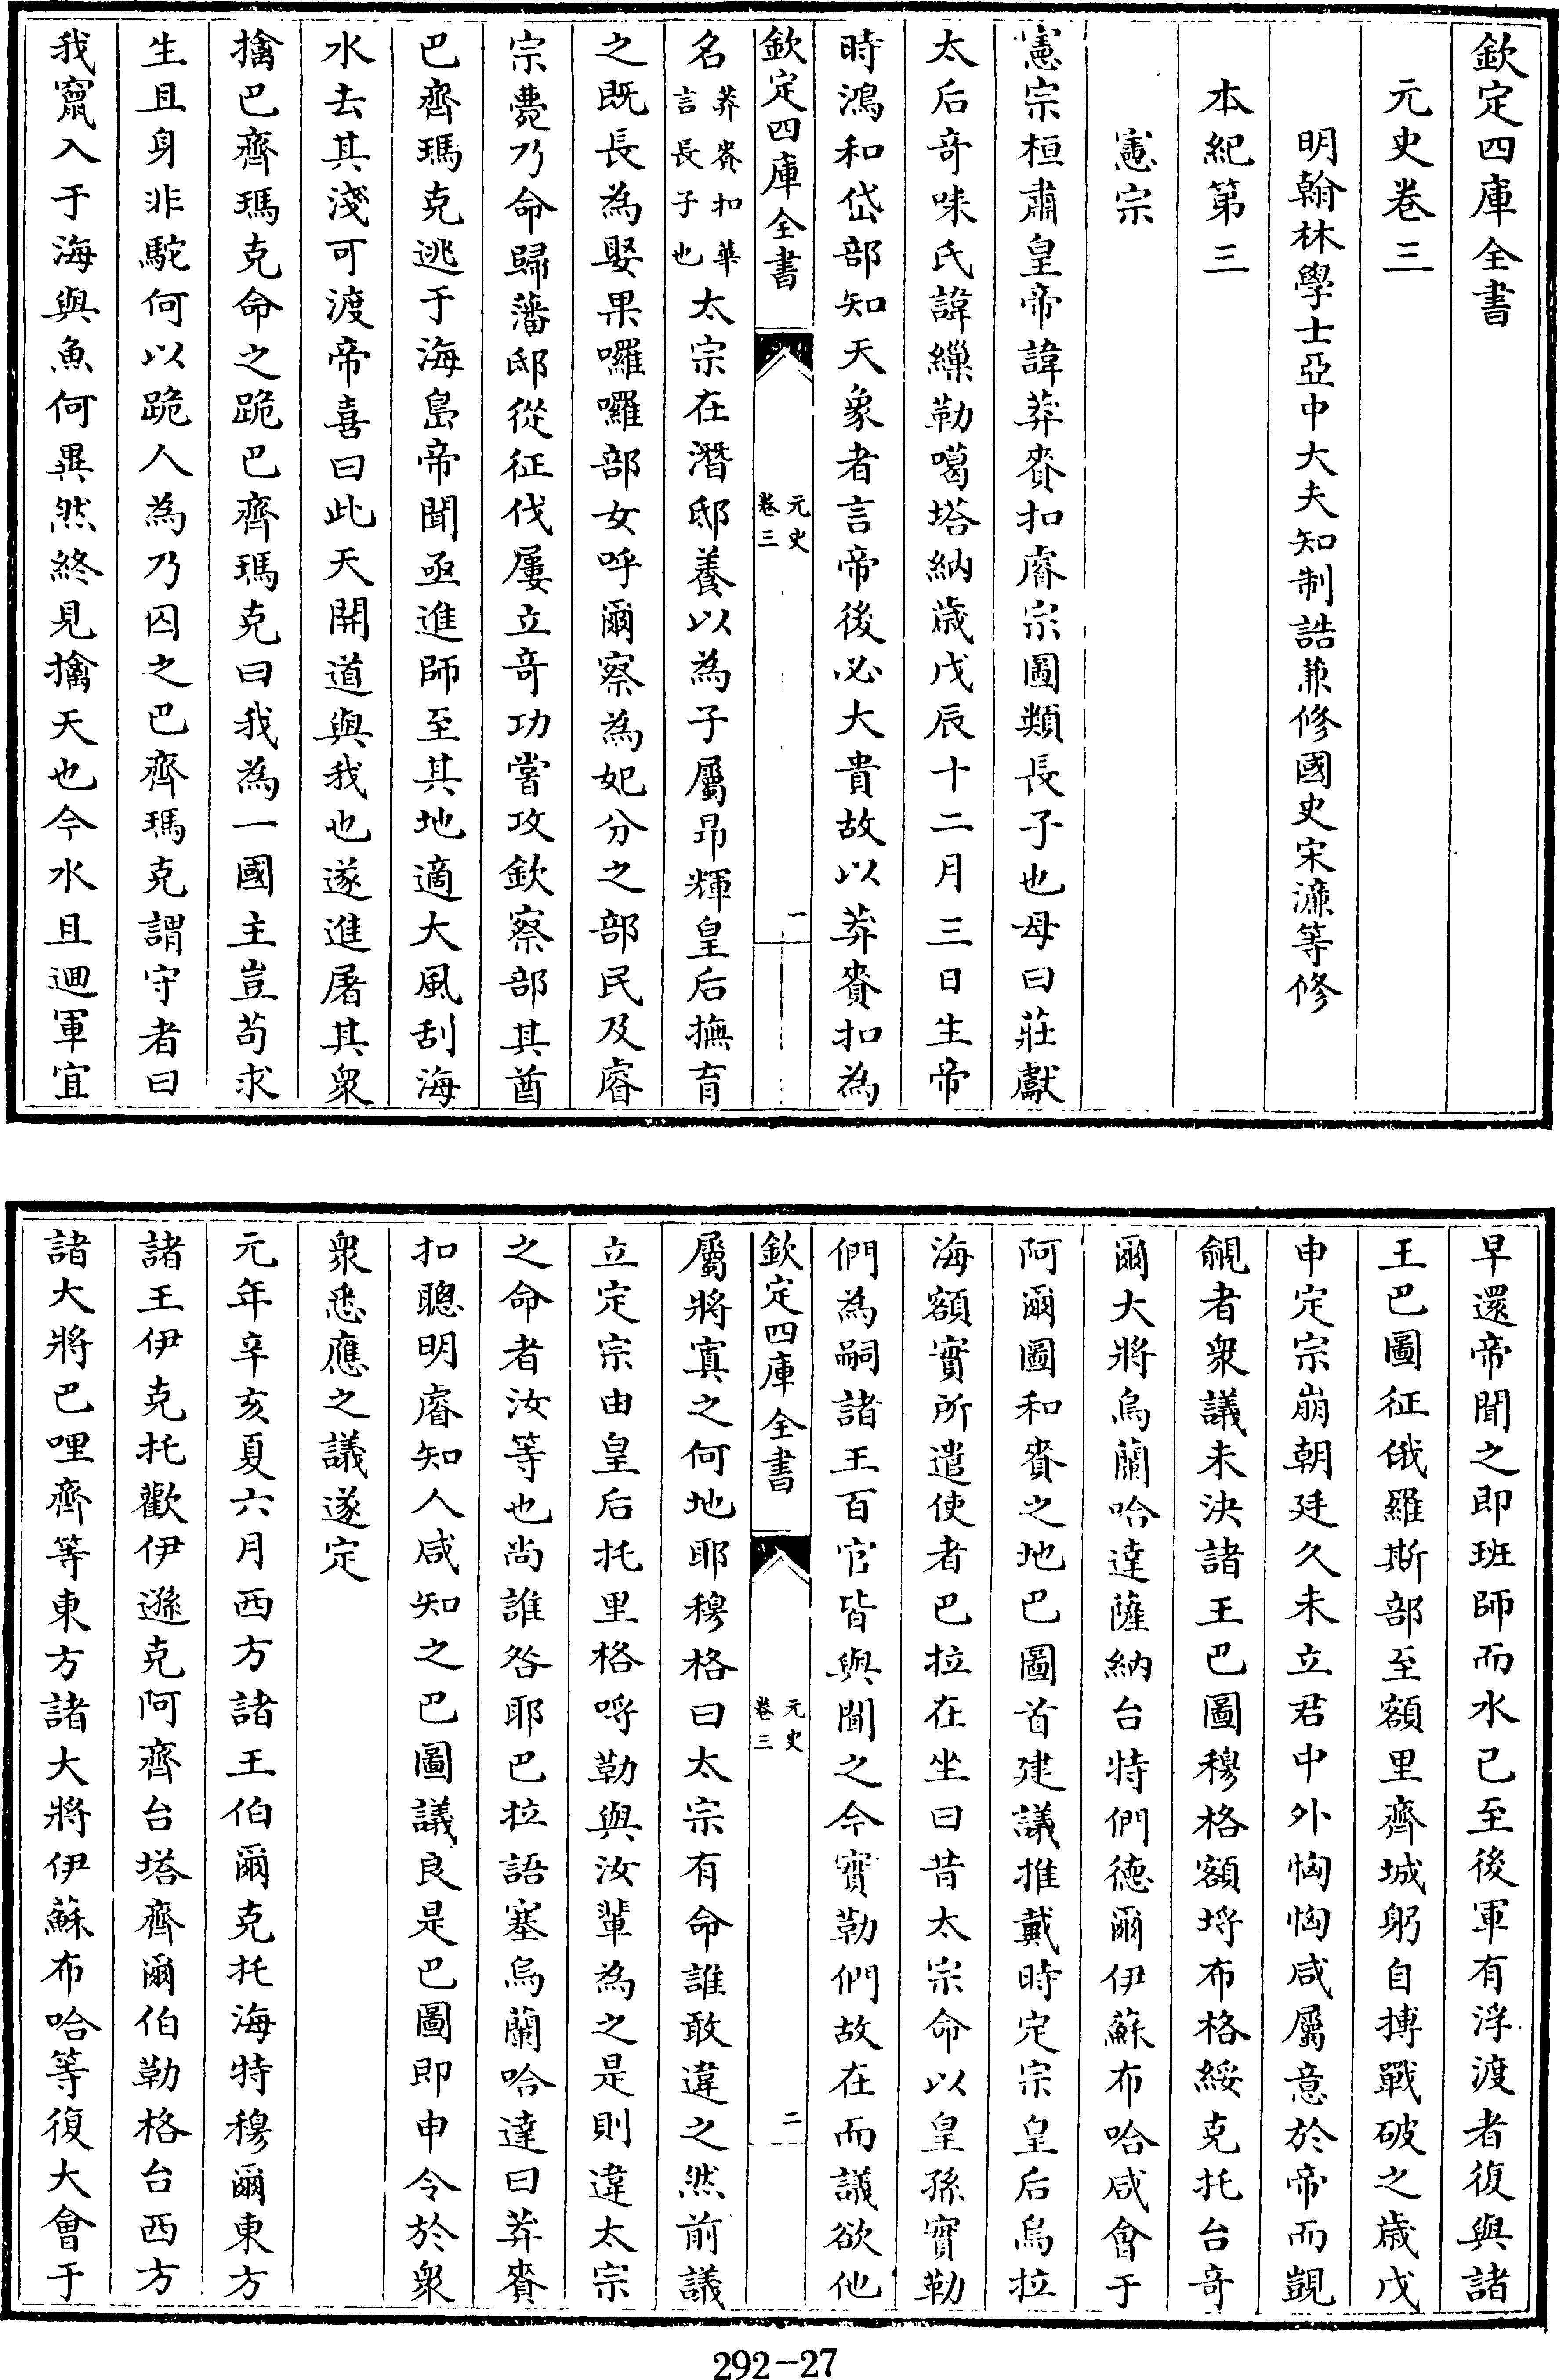 欽定四庫全書
元史卷三
明翰林學士亞中大夫知制誥兼修國史宋濂等修
本紀第三
憲宗
憲宗桓肅皇帝諱莽賚扣睿宗圖類長子也母曰莊獻
太后奇味氏諱繅勒噶塔納歲戊辰十二月三日生帝
時鴻和岱部知天象者言帝後必大貴故以莽賚扣為
欽定四庫全書
元史
卷三
一
名莽賚扣華言長子也太宗在潛邸養以為子屬昂輝皇后撫育
之既長為娶果囉囉部女呼爾察為妃分之部民及睿
宗薨乃命歸藩邸從征伐屢立奇功嘗攻欽察部其酋
巴齊瑪克逃于海島帝聞亟進師至其地適大風刮海
水去其淺可渡帝喜曰此天開道與我也遂進屠其衆
擒巴齊瑪克命之跪巴齊瑪克曰我為一國主豈苟求
生且身非駝何以跪人為乃囚之巴齊瑪克謂守者曰
我竄入于海與魚何異然終見擒天也今水且迴軍宜
早還帝聞之即班師而水已至後軍有浮渡者復與諸
王巴圖征俄羅斯部至額里齊城躬自搏戰破之歲戊
申定宗崩朝廷久未立君中外恟恟咸屬意於帝而覬
覦者衆議未決諸王巴圖穆格額埒布格綏克托台奇
爾大將烏蘭哈達薩納台特們德爾伊蘇布哈咸會于
阿爾圖和賚之地巴圖首建議推戴時定宗皇后烏拉
海額實所遣使者巴拉在坐曰昔太宗命以皇孫實勒
們為嗣諸王百官皆與聞之今實勒們故在而議欲他
欽定四庫全書
元史
卷三
二
屬將寘之何地耶穆格曰太宗有命誰敢違之然前議
立定宗由皇后托里格呼勒與汝輩為之是則違太宗
之命者汝等也尚誰咎耶巴拉語塞烏蘭哈達曰莽賚
扣聰明睿知人咸知之巴圖議良是巴圖即申令於衆
衆悉應之議遂定
元年辛亥夏六月西方諸王伯爾克托海特穆爾東方
諸王伊克托歡伊遜克阿齊台塔齊爾伯勒格台西方
諸大將巴哩齊等東方諸大將伊蘇布哈等復大會于
292-27